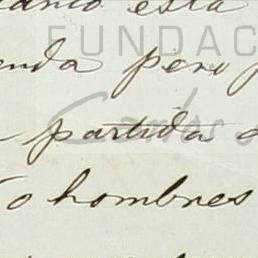 esta
FUNDAC
pero
Carlos
partida
o hombres